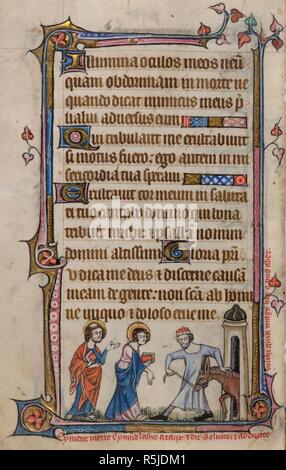 Illumina oculos meos ne un
quam obdormiam in morte ne
quando dicat inimicus meus p
ualui adversus eum
Qui tribulant me exultabunt
si motus fuero: ego autem in mi
sericordia tua speraui
Exultauit cor meum in saluta
ri tuo cantabo domino qui bona
tribuit michi: et psallam nomini
domini altissimi Gloria pri.
Iudica me deus et discerne causam
meam de gente non sca ab homi
ne iniquo et doloso erue me.
alamy
Image ID: R5JDM1
www.alamy.com